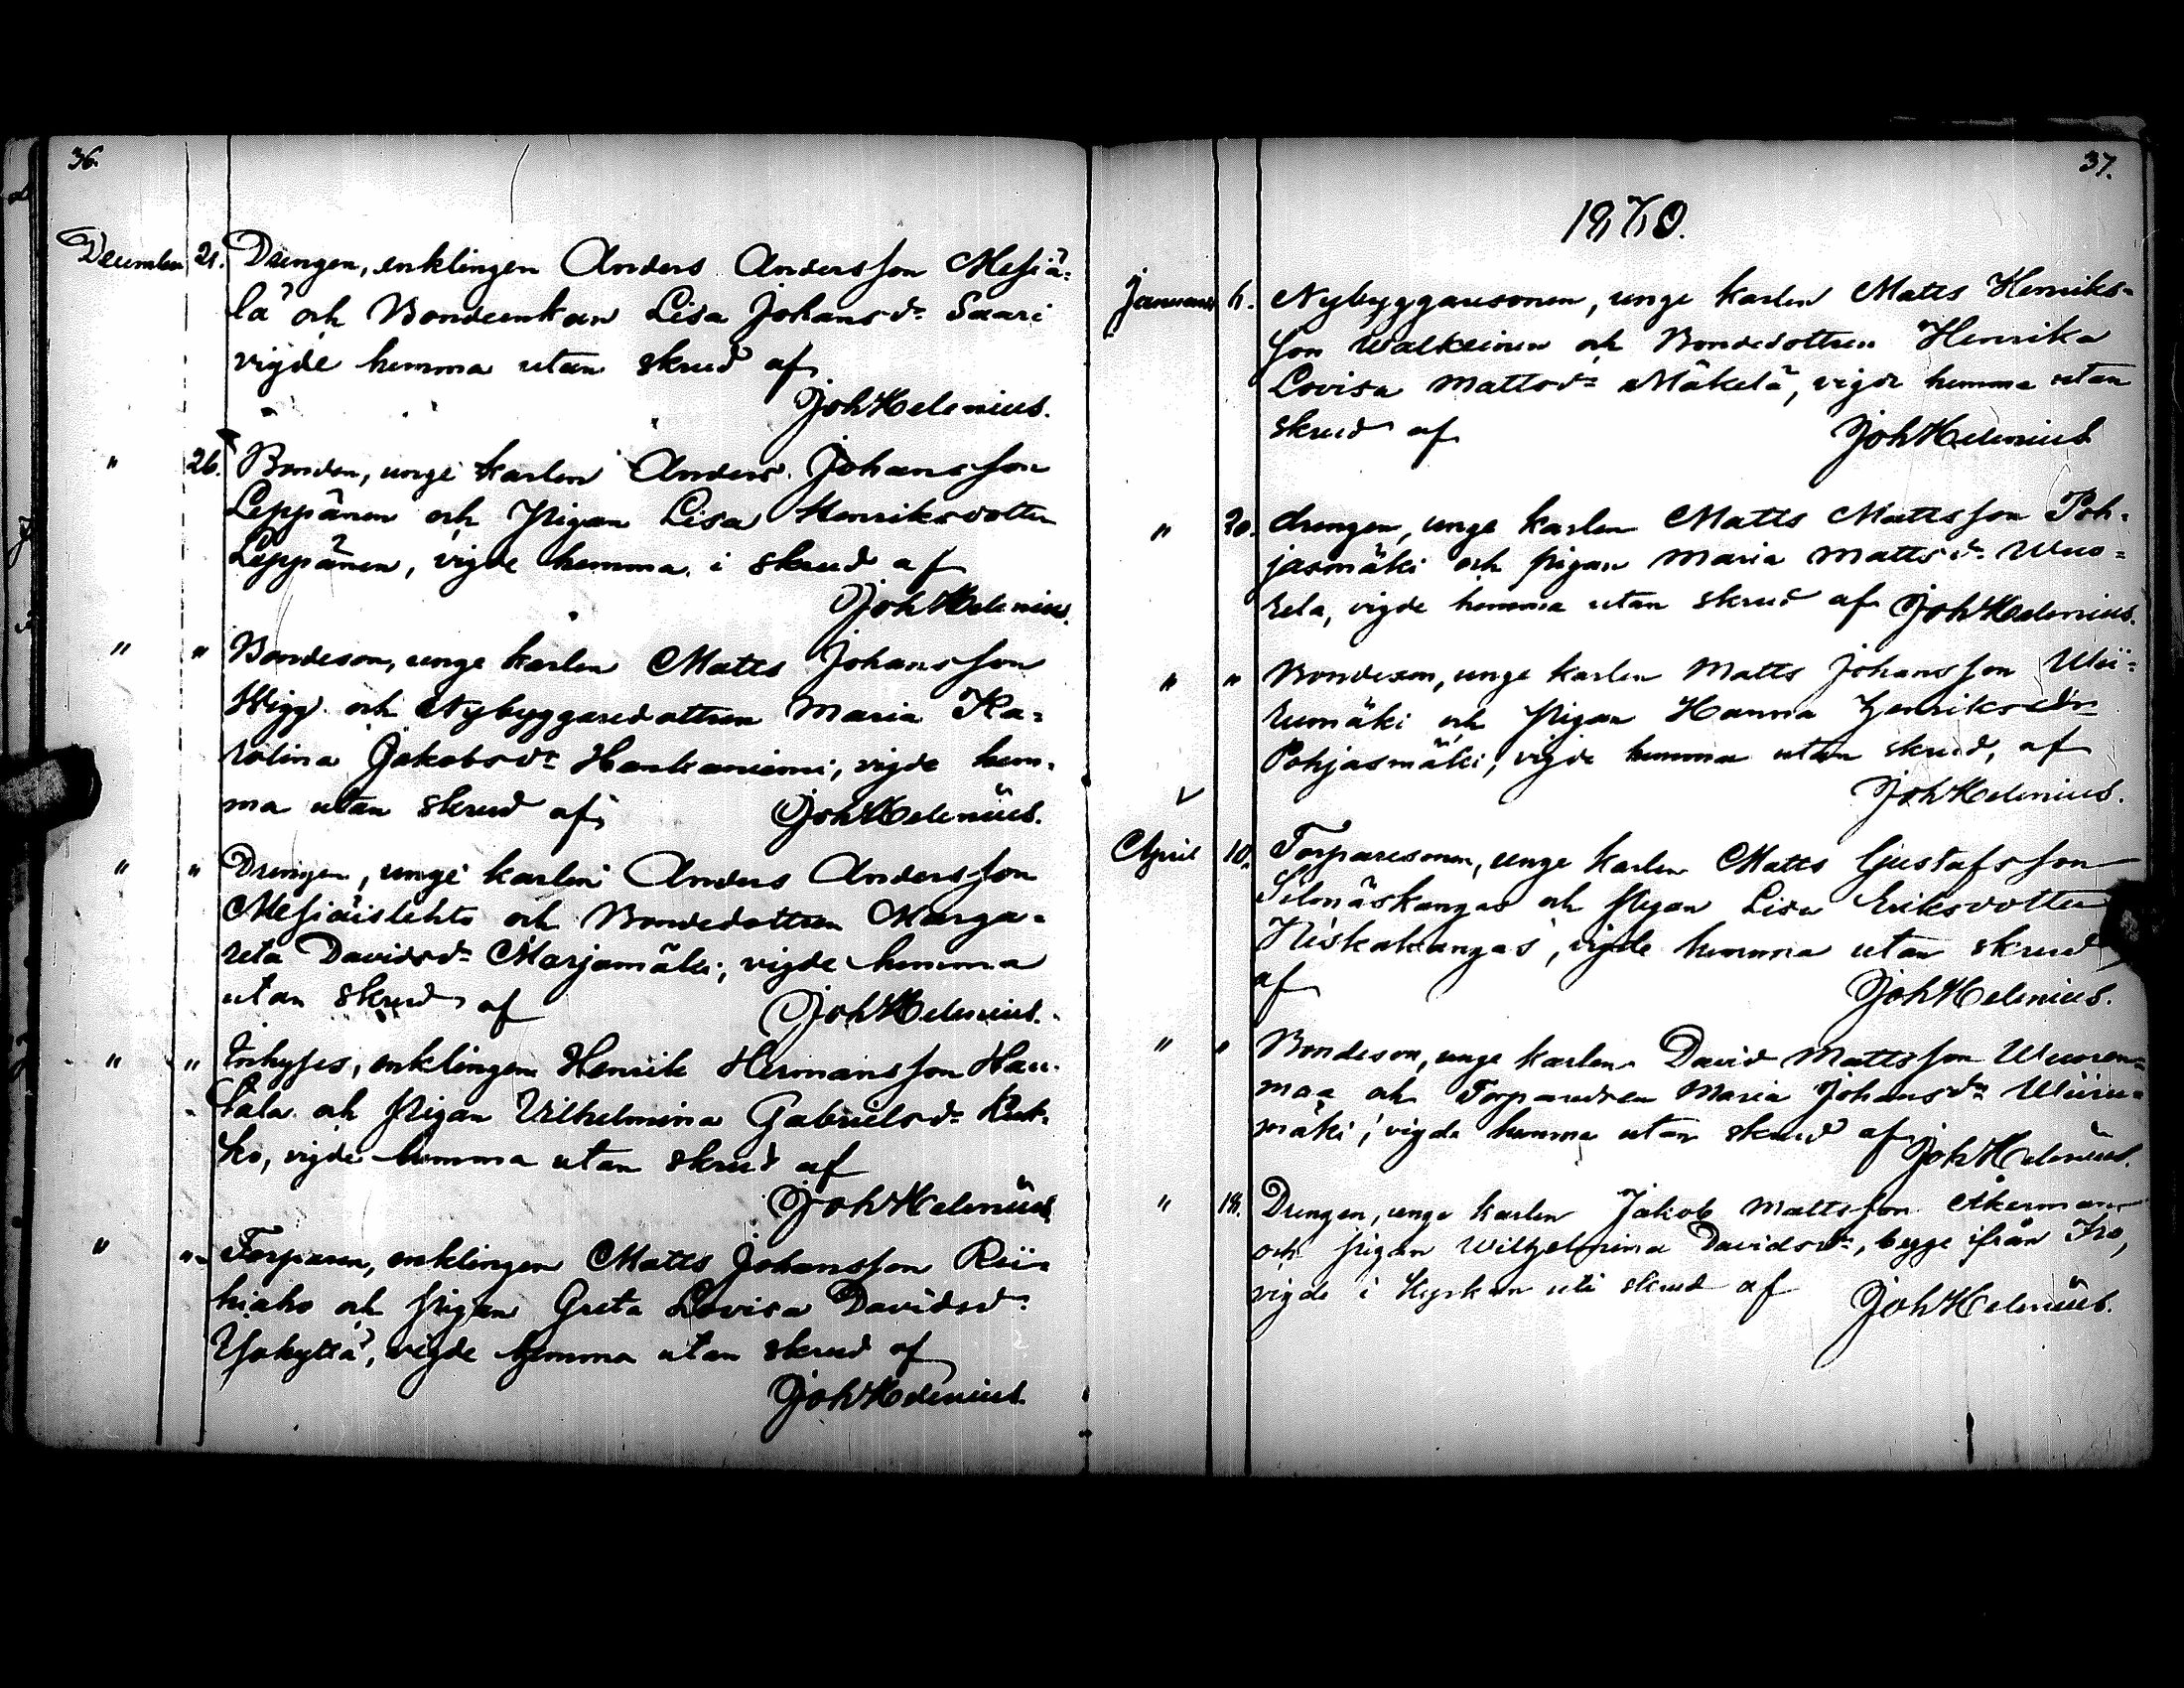 36.
December 21. Drengen, enklingen Anders Andersson Mesiä-
lä och Bondeenkan Lisa Johansdr Saari
vigde hemma utan skrud af
JohHelenius.
" 26. Bonden, unge karlen Anders Johansson
Leppänen och Pigan Lisa Henriksdotter
Leppänen, vigde hemma i skrud af
JohHelenius.
" " Bondeson, unge karlen Matts Johansson
Wigg och Nybyggaredottren Maria Ka-
rolina Jakobsdr Hankaniemi, vigde hem-
ma utan skrud af JohHelenius.
" " Drengen, unge karlen Anders Andersson
Mesiäislehto och Bondedottren Marga-
reta Davidsdr Marjamäki, vigde hemma
utan skrud af JohHelenius.
" " Inhyses, enklingen Henrik Hermansson Hau-
tala och Pigan Vilhelmina Gabrielsdr Kuk-
ko, vigde hemma utan skrud af
JohHelenius
" " Torparen, enklingen Matts Johansson Rii-
hiaho och Pigan Greta Lovisa Davidsdr
Ysokyttä, vigde hemma utan skrud af
JohHelenius.
37.
1870.
Januari 6. Nybyggaresonen, unge karlen Matts Henriks-
son Walkeinen och Bondedottren Henrika
Lovisa Mattsdr Mäkelä, vigde hemma utan
skrud af JohHelenius
" 20. drengen, unge karlen Matts Mattsson Poh-
jasmäki och pigan Maria Mattsdr Wuo-
rela, vigde hemma utan skrud af JohHelenius.
" " Bondeson, unge karlen Matts Johansson Wii-
rumäki och Pigan Hanna Henriksdr
Pohjasmäki, vigde hemma utan skrud, af
JohHelenius.
April 10. Torparesonen, unge karlen Matts Gustafsson
Silmäskangas och Pigan Lisa Eriksdotter
Niskakangas, vigde hemma utan skrud
af JohHelenius.
" " Bondeson, unge karlen David Mattsson Wuoren-
maa och Torparedren Maria Johansdr Wiiru-
mäki, vigde hemma utan skrud af JohHelenius.
" 18. Drengen, unge karlen Jakob Mattsson Åkerman
och pigan Wilhelmina Davidsdr, begge ifrån Iso,
vigde i Kyrkan uti skrud af JohHelenius.